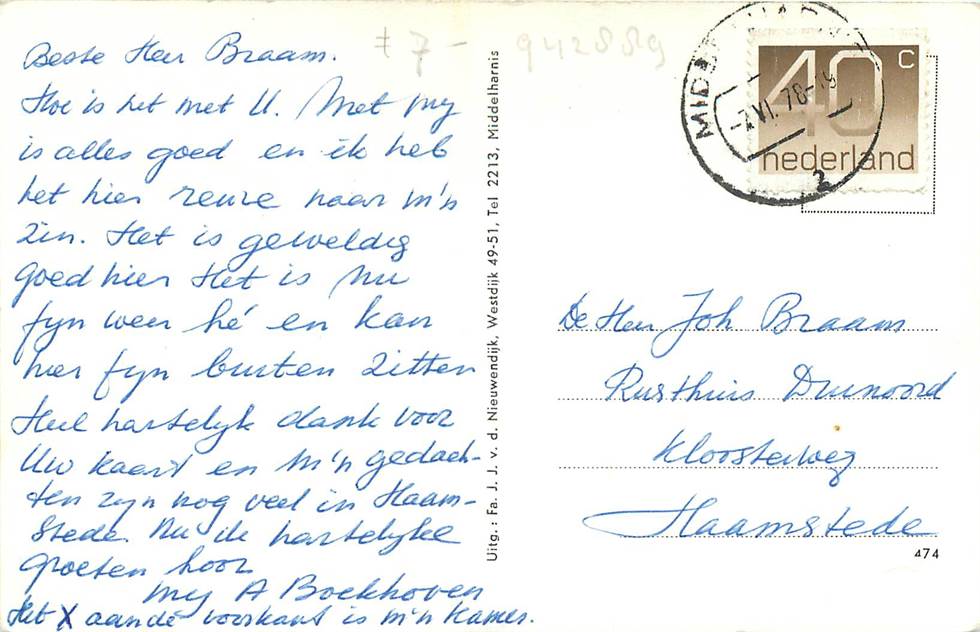 Beste Heer Braam.
Hoe is het met U. Met my
is alles goed en ik heb
het hier reuze naar m'n
zin. Het is geweldig
goed hier Het is nu
fyn weer hé en kan
hier fyn buiten zitten
Heel hartelyk dank voor
Uw kaart en m'n gedach-
ten zyn nog veel in Haam-
stede. Nu de hartelyke
groeten hoor
my A Boekhoven
Het X aan de voorkant is m'n kamer.
Uitg.: Fa. J. J. v. d. Nieuwendijk, Westdijk 49-51, Tel 2213, Middelharnis
7 -
942889
40 c
nederland
-7.VI.78-19
2
De Heer Joh Braam
Rusthuis Duinoord
Kloosterweg
Haamstede
474